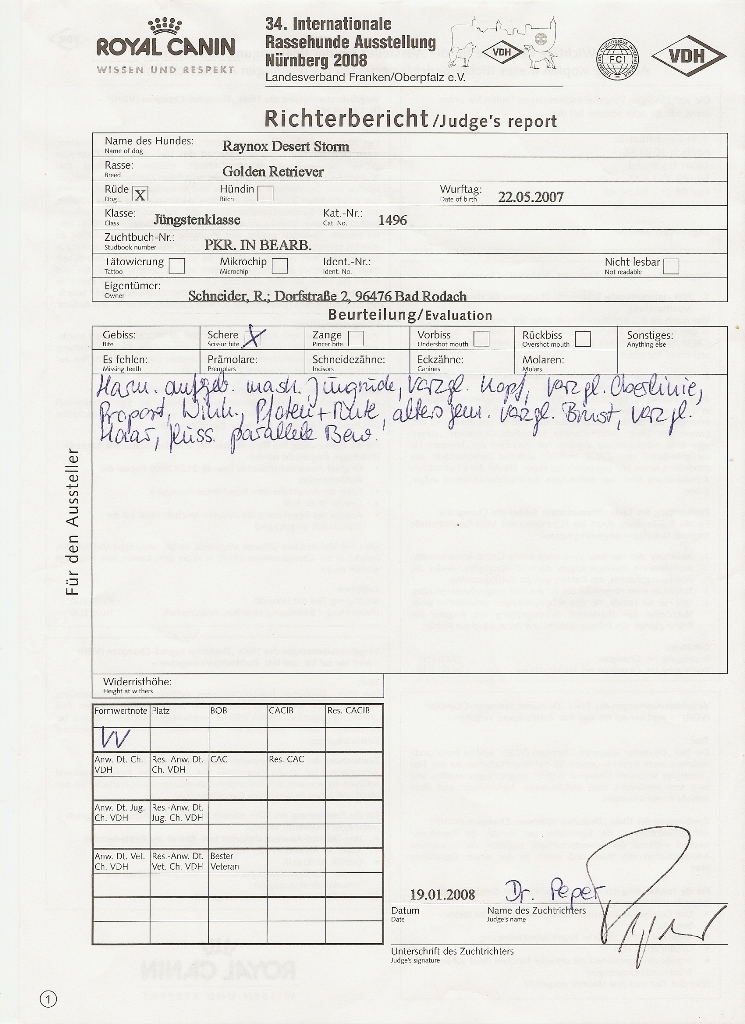 ROYAL CANIN
WISSEN UND RESPEKT
34. Internationale
Rassehunde Ausstellung
Nürnberg 2008
Landesverband Franken/Oberpfalz e.V.
VDH
FCI
VDH
Richterbericht/Judge's report
Name des Hundes: Raynox Desert Storm
Name of dog
Rasse: Golden Retriever
Breed
Rüde X Hündin Wurftag: 22.05.2007
Dog Bitch Date of birth
Klasse: Jüngstenklasse Kat.-Nr.: 1496
Class Cat. No.
Zuchtbuch-Nr.: PKR. IN BEARB.
Studbook number
Tätowierung Mikrochip Ident.-Nr.: Nicht lesbar
Tattoo Microchip Ident. No. Not readable
Eigentümer: Schneider, R.; Dorfstraße 2, 96476 Bad Rodach
Owner
Beurteilung/Evaluation
Gebiss: Schere X Zange Vorbiss Rückbiss Sonstiges:
Bite Scissor bite Pincer bite Undershot mouth Overshot mouth Anything else
Es fehlen: Prämolare: Schneidezähne: Eckzähne: Molaren:
Missing teeth Premplars Incisors Canines Molars
Harm. aufgeb. mask. Jungrüde, vorzgl. Kopf, vorzgl. Oberlinie,
Proport, Wink., Pfoten + Rute, altersgem. vorzgl. Brust, vorzgl.
Haar, flüss. parallele Bew.
Für den Aussteller
Widerristhöhe:
Height at withers
Formwertnote Platz BOB CACIB Res. CACIB
VV
Anw. Dt. Ch. VDH Res. Anw. Dt. Ch. VDH CAC Res. CAC
Anw. Dt. Jug. Ch. VDH Res.-Anw. Dt. Jug. Ch. VDH
Anw. Dt. Vet. Ch. VDH Res.-Anw. Dt. Vet. Ch. VDH Bester Veteran
19.01.2008 Dr. Peper
Datum Name des Zuchtrichters
Date Judge's name
Unterschrift des Zuchtrichters
Judge's signature
1